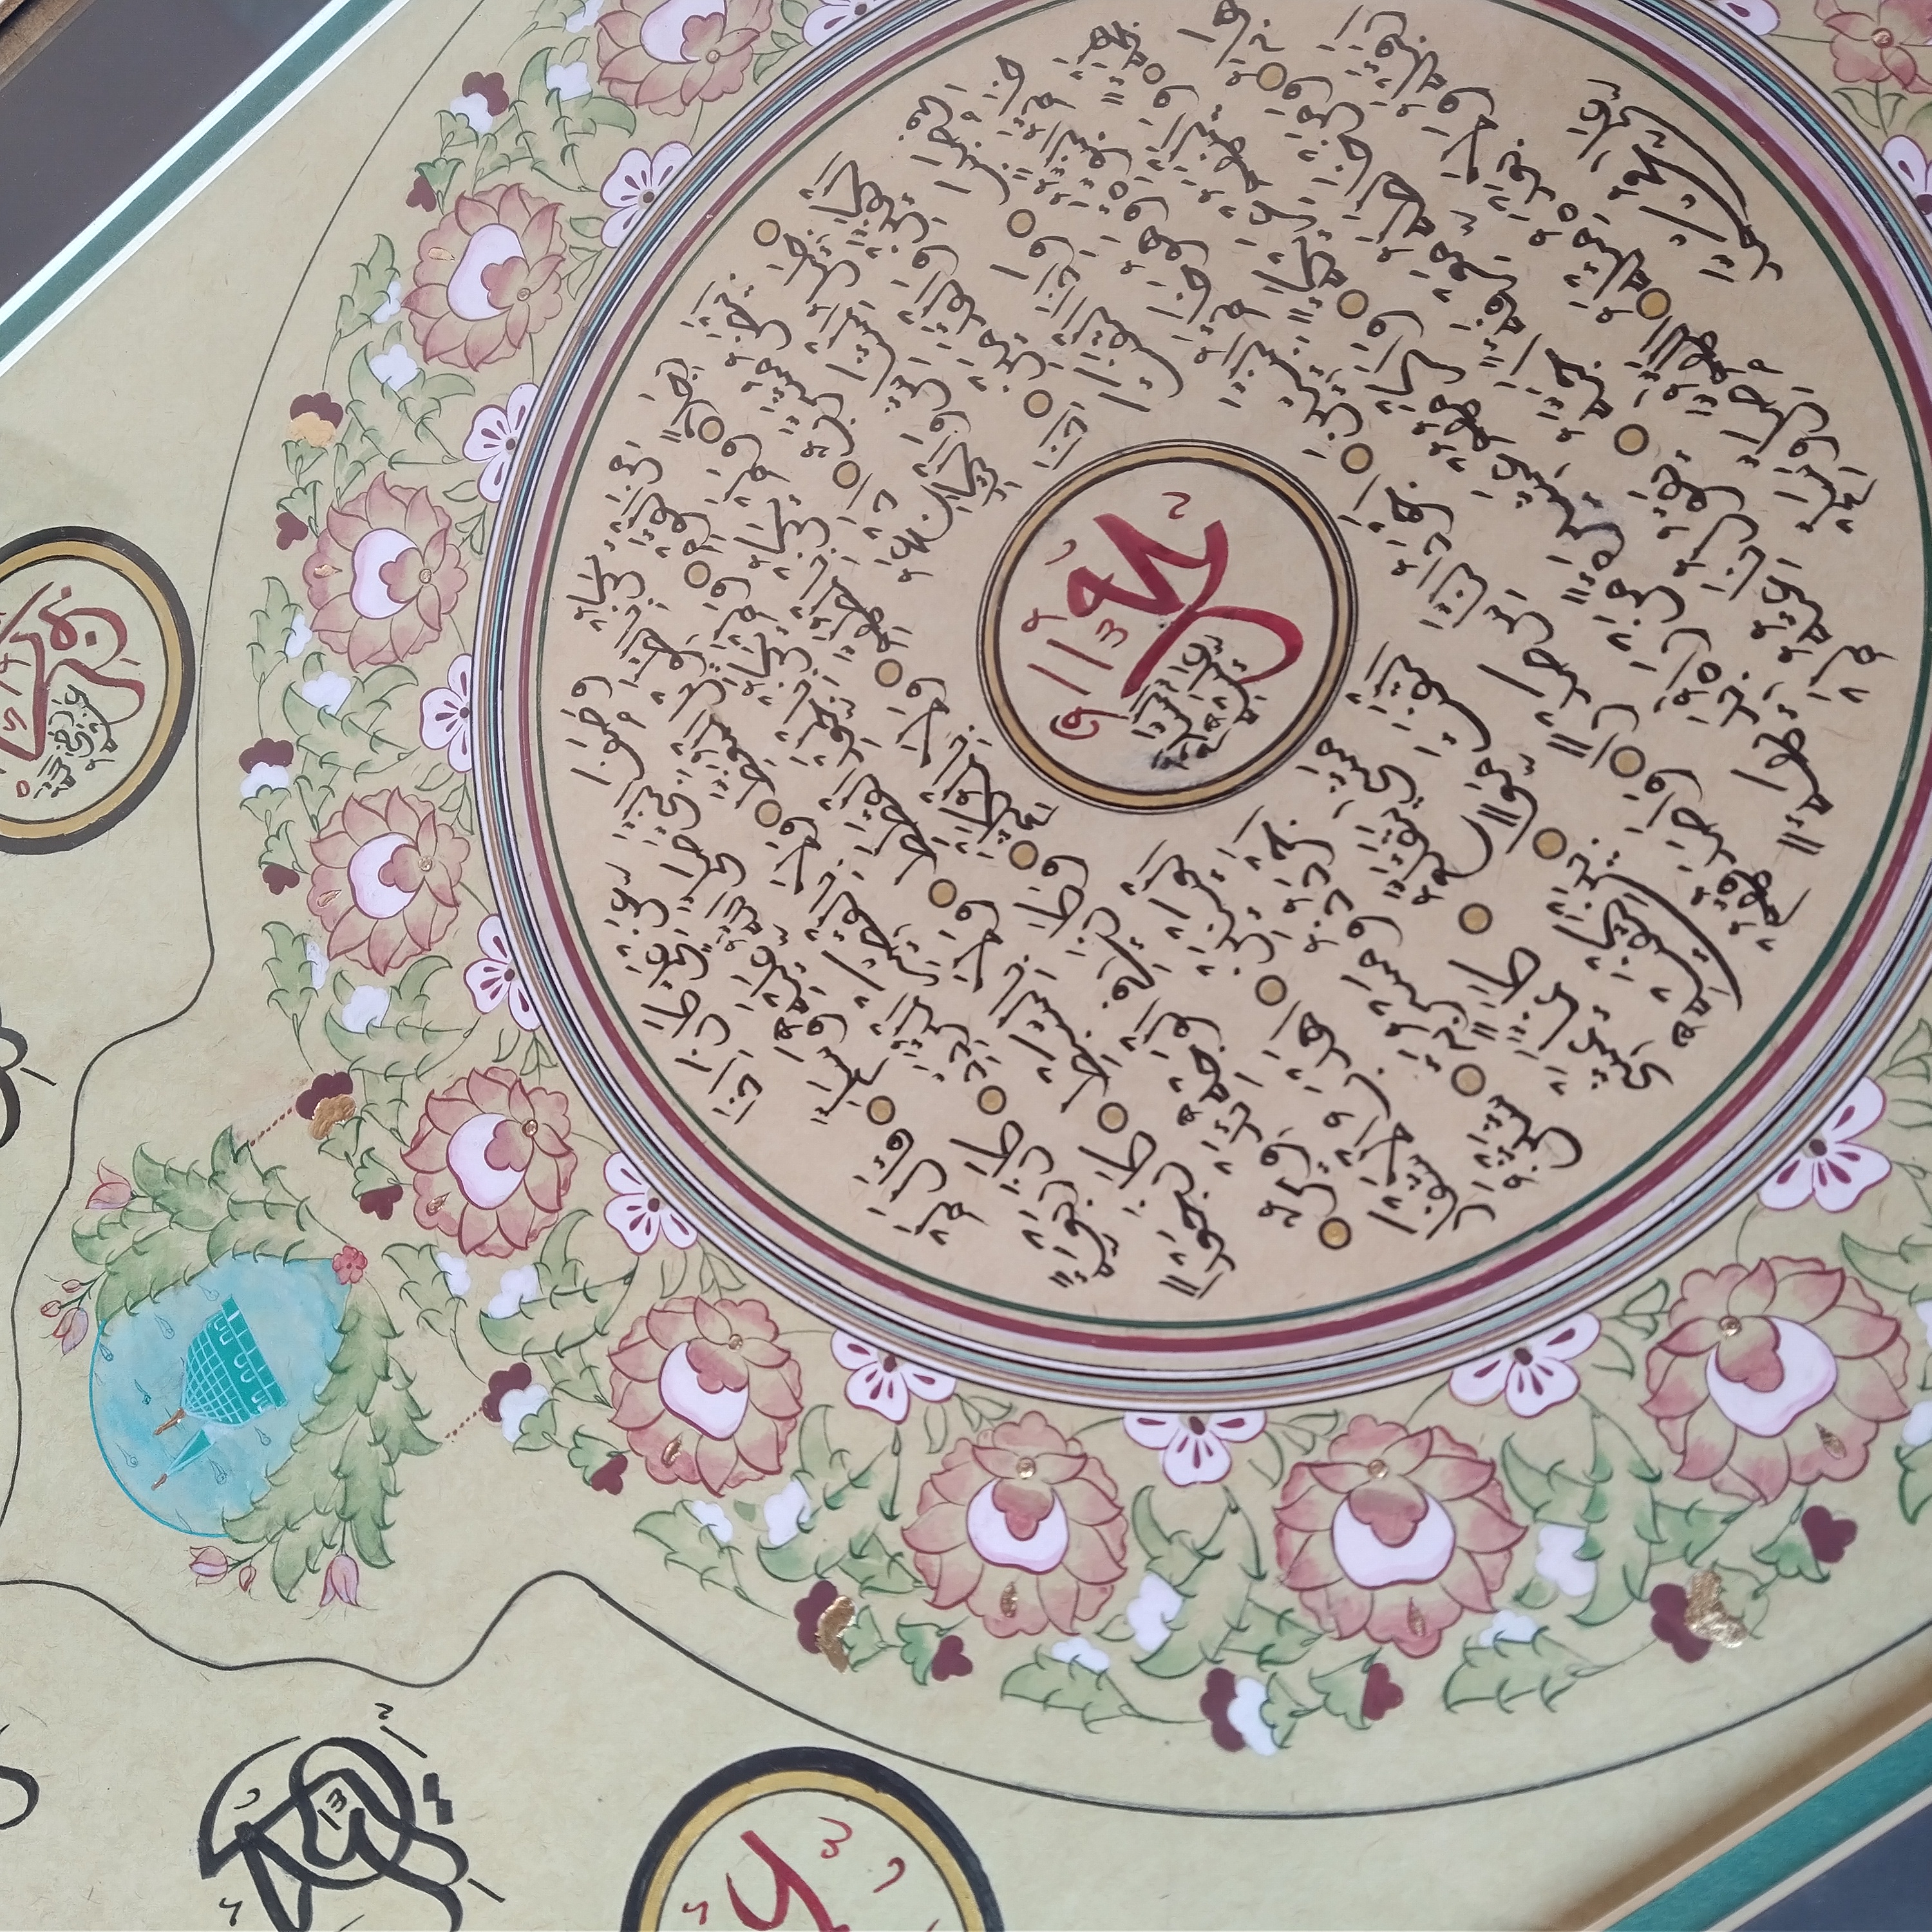 ابوبكر
رضى الله عنه
عَنْ عَلِيٍّ كَانَ اِذَا
وَصَفَ النَّبِيَّ صَلَّى اللّٰهُ عَلَيْهِ وَسَلَّمَ قَالَ لَمْ
يَكُنْ بِالطَّوِيلِ الْمُمَّغِطِ وَلَا بِالْقَصِيرِ الْمُتَرَدِّدِ كَانَ رَبْعَةً
مِنَ الْقَوْمِ وَلَمْ يَكُنْ بِالْجَعْدِ الْقَطَطِ وَلَا بِالسَّبْطِ كَانَ جَعْدًا
رَجِلًا وَلَمْ يَكُنْ بِالْمُطَهَّمِ وَلَا بِالْمُكَلْثَمِ وَكَانَ فِي الْوَجْهِ تَدْوِيرٌ
اَبْيَضُ مُشْرَبٌ اَدْعَجُ الْعَيْنَيْنِ اَهْدَبُ الْاَشْفَارِ
جَلِيلُ الْمُشَاشِ وَالْكَتَدِ اَجْرَدُ ذُو مَسْرُبَةٍ شَثْنُ
الْكَفَّيْنِ وَالْقَدَمَيْنِ اِذَا مَشٰى يَتَقَلَّعُ كَاَنَّمَا يَمْشِي
فِي صَبَبٍ وَاِذَا الْتَفَتَ الْتَفَتَ مَعًا بَيْنَ كَتِفَيْهِ
خَاتَمُ النُّبُوَّةِ وَهُوَ خَاتَمُ النَّبِيِّينَ اَجْوَدُ النَّاسِ صَدْرًا وَاَصْدَقُهُمْ
لَهْجَةً وَاَلْيَنُهُمْ عَرِيكَةً وَاَكْرَمُهُمْ عَشِيرَةً مَنْ رَاٰهُ بَدِيهَةً
هَابَهُ وَمَنْ خَالَطَهُ مَعْرِفَةً اَحَبَّهُ يَقُولُ نَاعِتُهُ لَمْ
اَرَ قَبْلَهُ وَلَا بَعْدَهُ مِثْلَهُ اَللّٰهُمَّ صَلِّ وَسَلِّمْ
عَلٰى مُحَمَّدٍ
مُحَمَّد
عَلَيْهِ السَّلَامُ